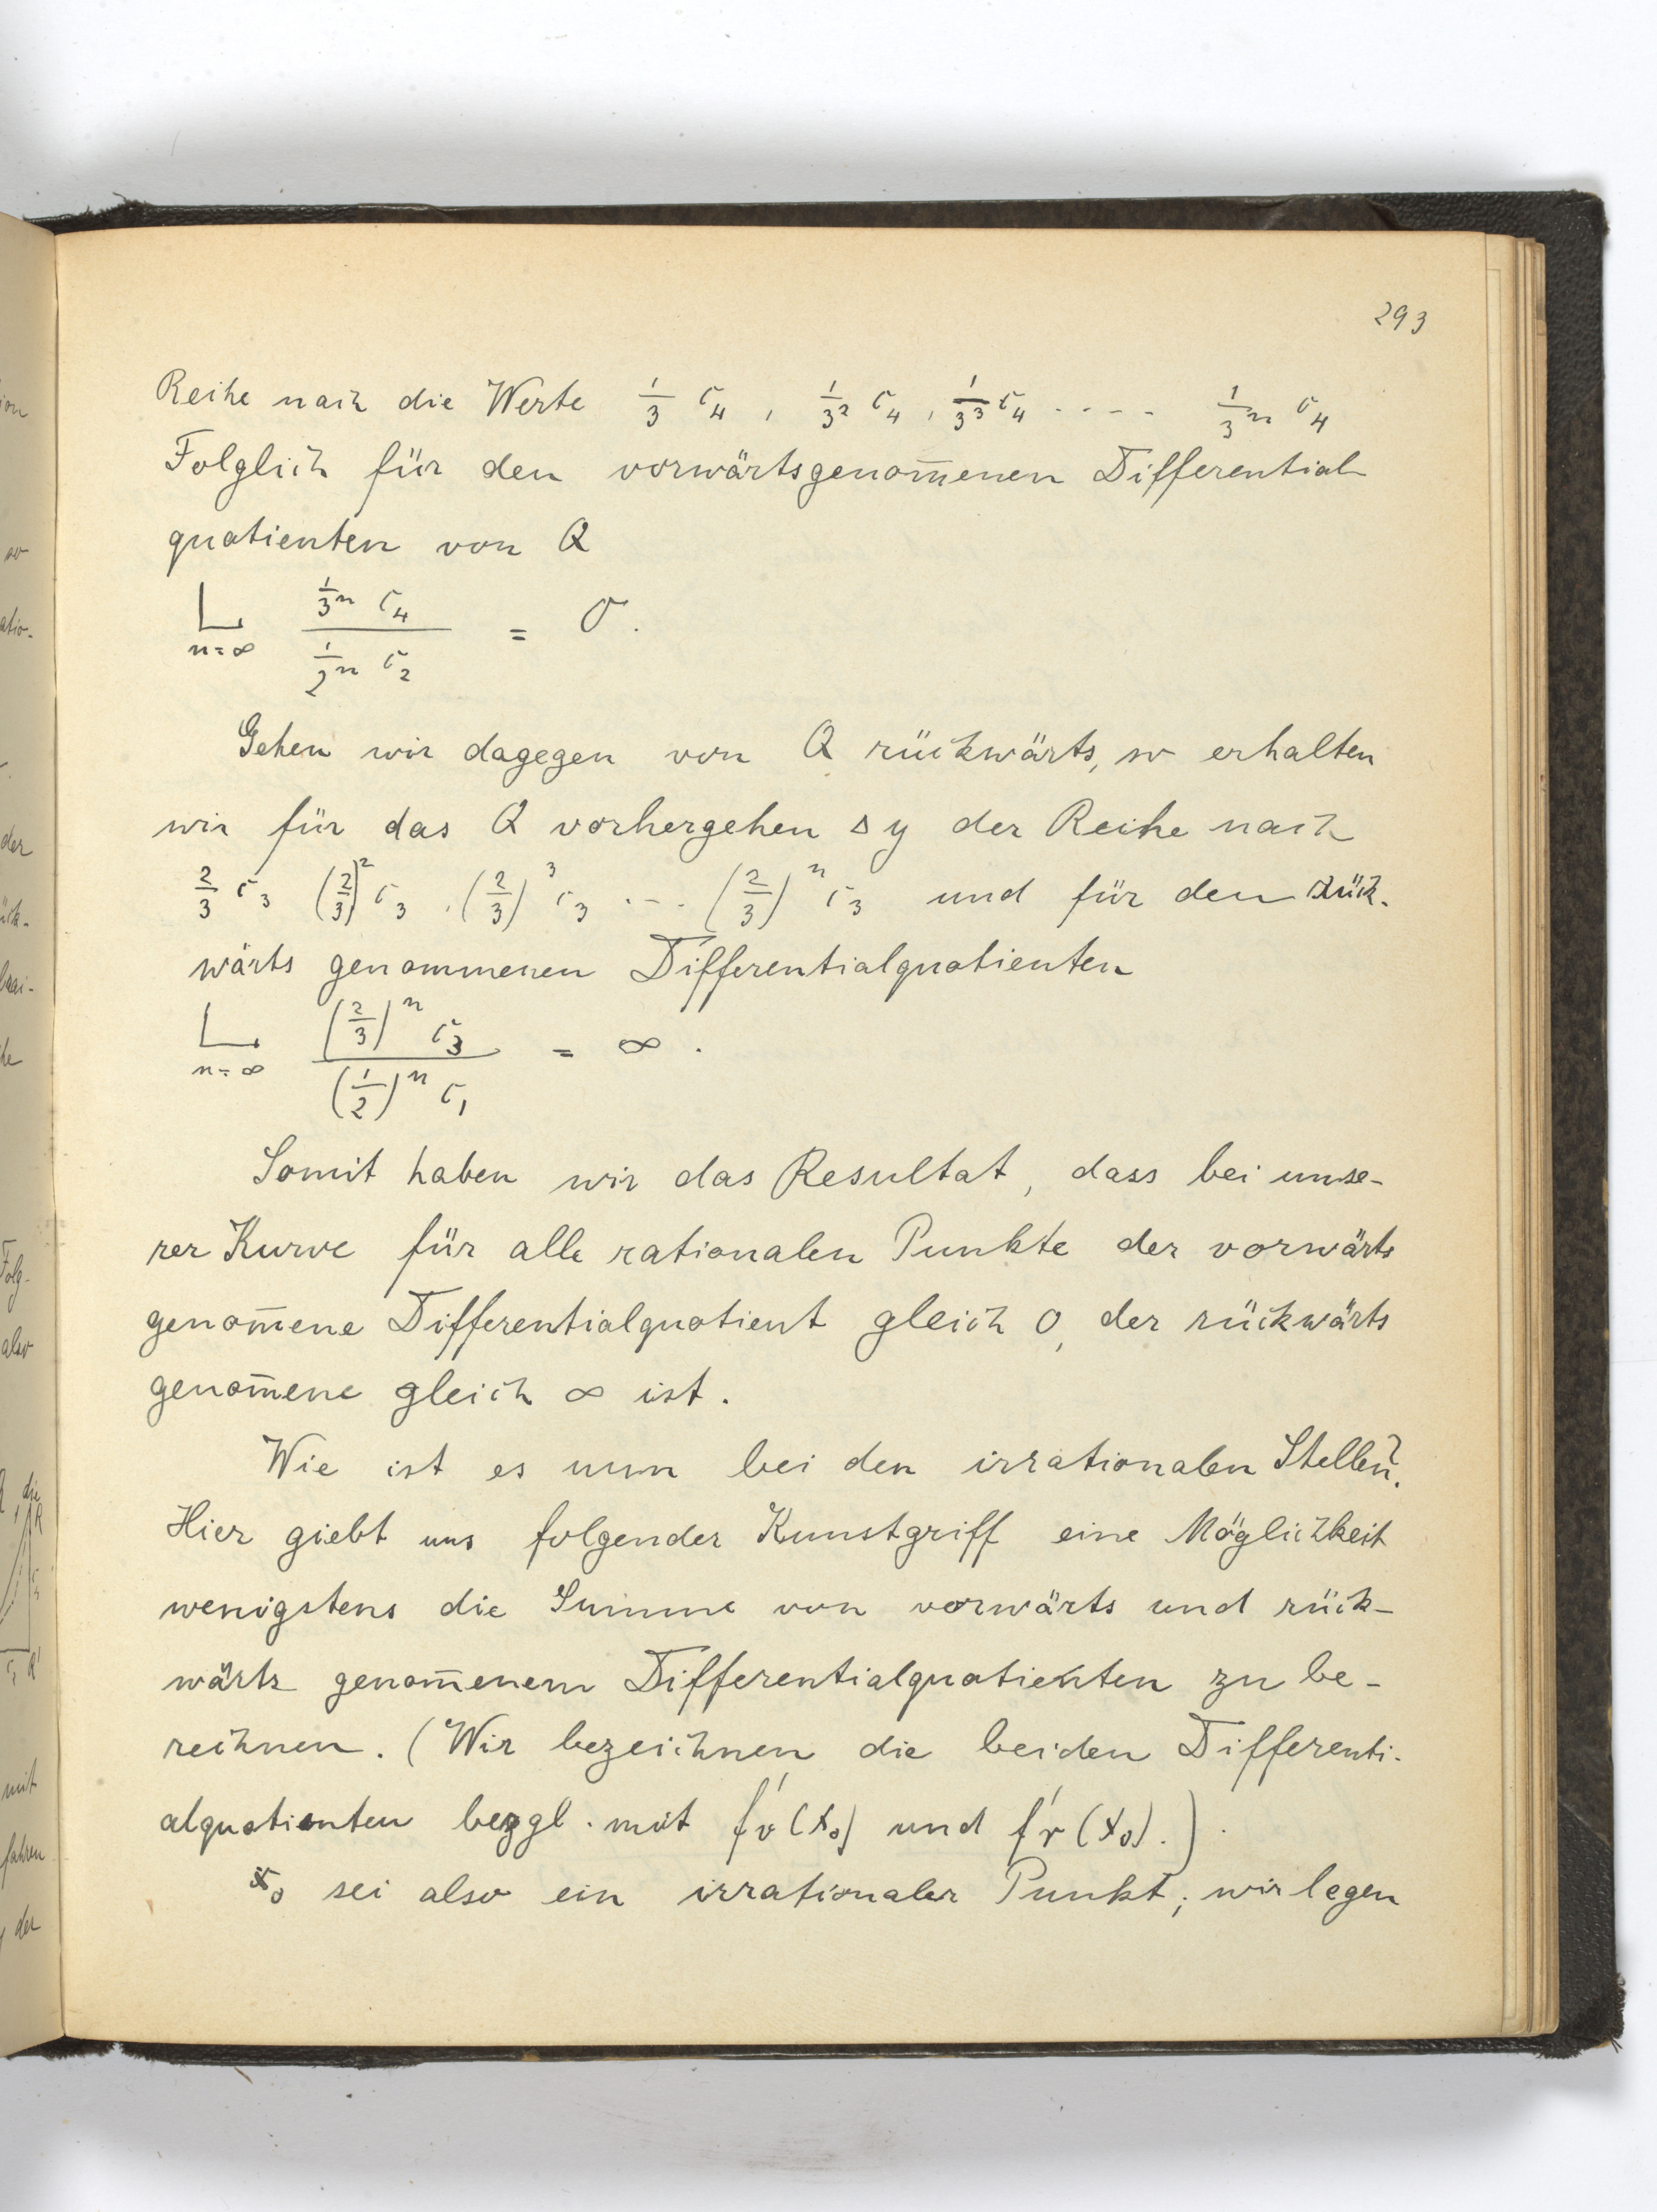 293
Reihe nach die Werte 1/3 c₄, 1/3² c₄, 1/3³ c₄ .... 1/3ⁿ c₄
Folglich für den vorwärtsgenom̄enen Differential
quotienten von Q
L n=∞ (1/3ⁿ c₄)/(1/2ⁿ c₂) = 0.
Gehen wir dagegen von Q rückwärts, so erhalten
wir für das Q vorhergehen Δy der Reihe nach
2/3 c₃ (2/3)² c₃ . (2/3)³ c₃ ... (2/3)ⁿ c₃ und für den rück-
wärts genommenen Differentialquotienten
L n=∞ ((2/3)ⁿ c₃)/((1/2)ⁿ c₁) = ∞.
Somit haben wir das Resultat, dass bei unse-
rer Kurve für alle rationalen Punkte der vorwärts
genom̄ene Differentialquotient gleich 0, der rückwärts
genom̄ene gleich ∞ ist.
Wie ist es nun bei den irrationalen Stellen?
Hier giebt uns folgender Kunstgriff eine Möglichkeit
wenigstens die Summe von vorwärts und rück-
wärts genom̄enem Differentialquotienten zu be-
rechnen. (Wir bezeichnen die beiden Differenti-
alquotienten bezgl. mit f'v(x₀) und f'r(x₀).).
x₀ sei also ein irrationaler Punkt; wir legen